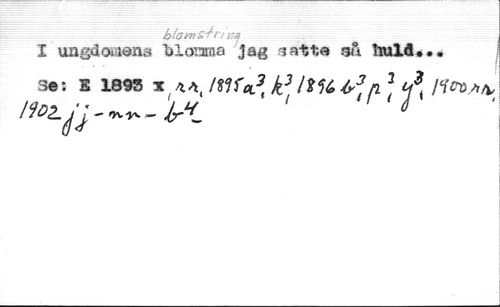 blomstring
I ungdomens blomma jag satte så huld...
Se: E 1893 x, rr, 1895 a³, k³, 1896 b³, p³, y³, 1900 rr,
1902 jj - nn - b⁴